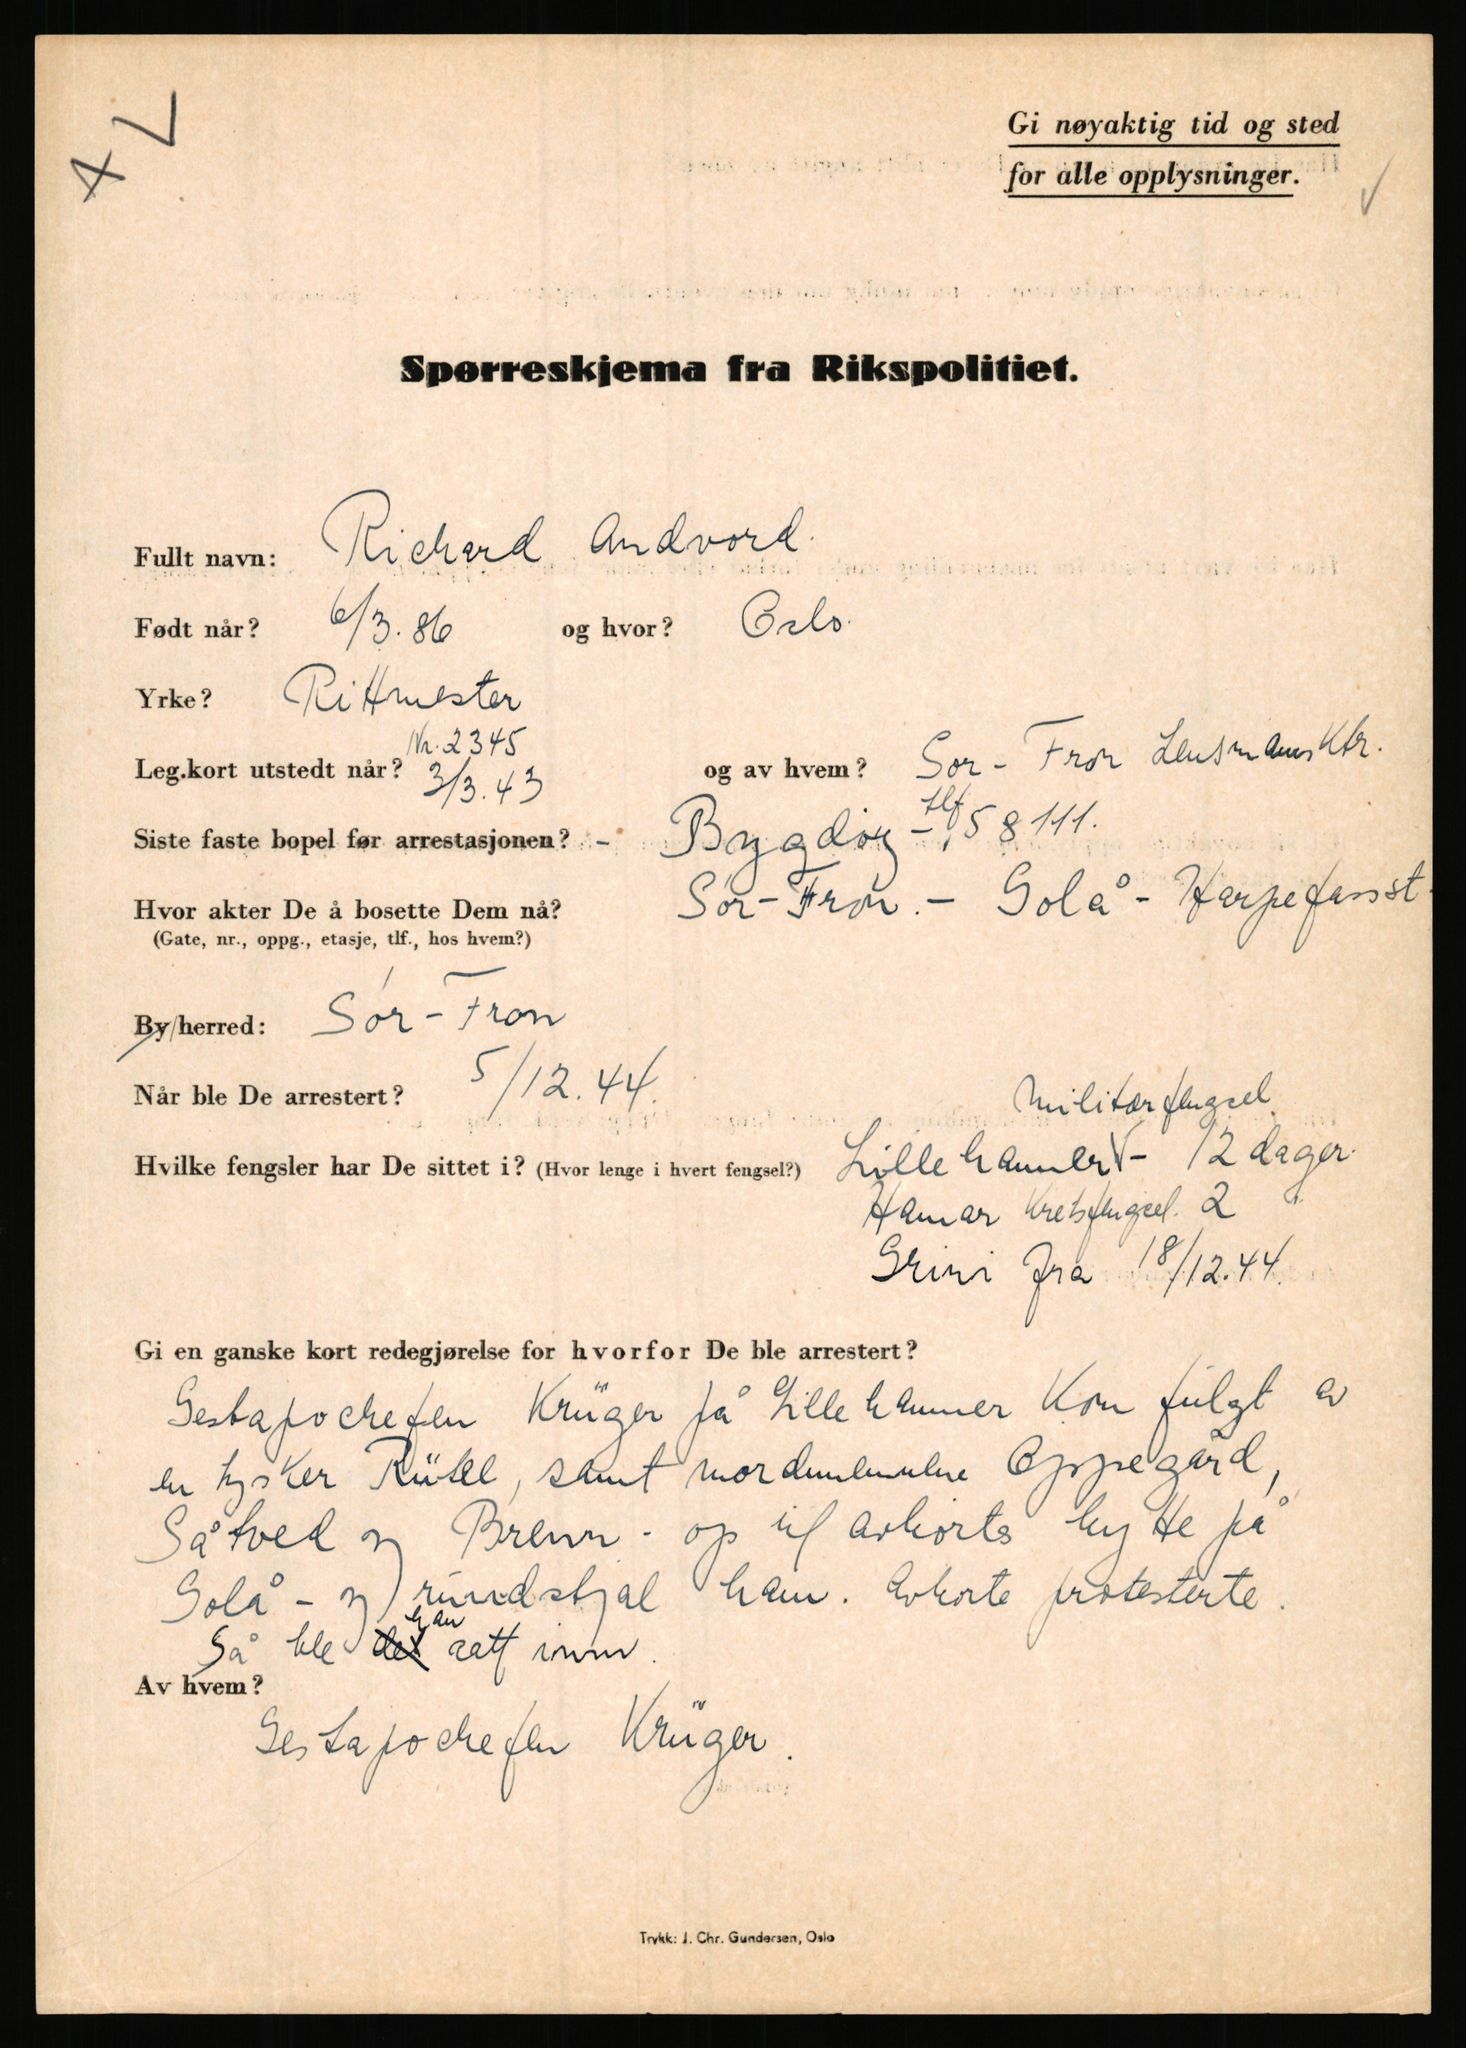 A V
Gi nøyaktig tid og sted
for alle opplysninger.
Spørreskjema fra Rikspolitiet.
Fullt navn: Richard Andvord.
Født når? 6/3. 86 og hvor? Oslo.
Yrke? Rittmester
Nr. 2345
Leg.kort utstedt når? 3/3. 43 og av hvem? Sør - Fron Lensmannsktr.
Siste faste bopel før arrestasjonen? - Bygdøy - tlf 58111.
Hvor akter De å bosette Dem nå? Sør - Fron. - Golå - Harpefossst.
(Gate, nr., oppg., etasje, tlf., hos hvem?)
By/herred: Sør - Fron
Når ble De arrestert? 5/12. 44.
Militærfengsel.
Hvilke fengsler har De sittet i? (Hvor lenge i hvert fengsel?) Lillehammer - 12 dager.
Hamar Kretsfengsel. 2 "
Grini fra 18/12. 44.
Gi en ganske kort redegjørelse for hvorfor De ble arrestert?
Gestapochefen Krüger på Lillehammer kom fulgt av
en tysker, samt nordmennene Oppegård,
Såtved og Brenn - op til avhørtes hytte på
Golå - og rundstjal ham. Avhørte protesterte.
Så ble det han satt inn.
Av hvem?
Gestapochefen Krüger.
Trykk: J. Chr. Gundersen, Oslo